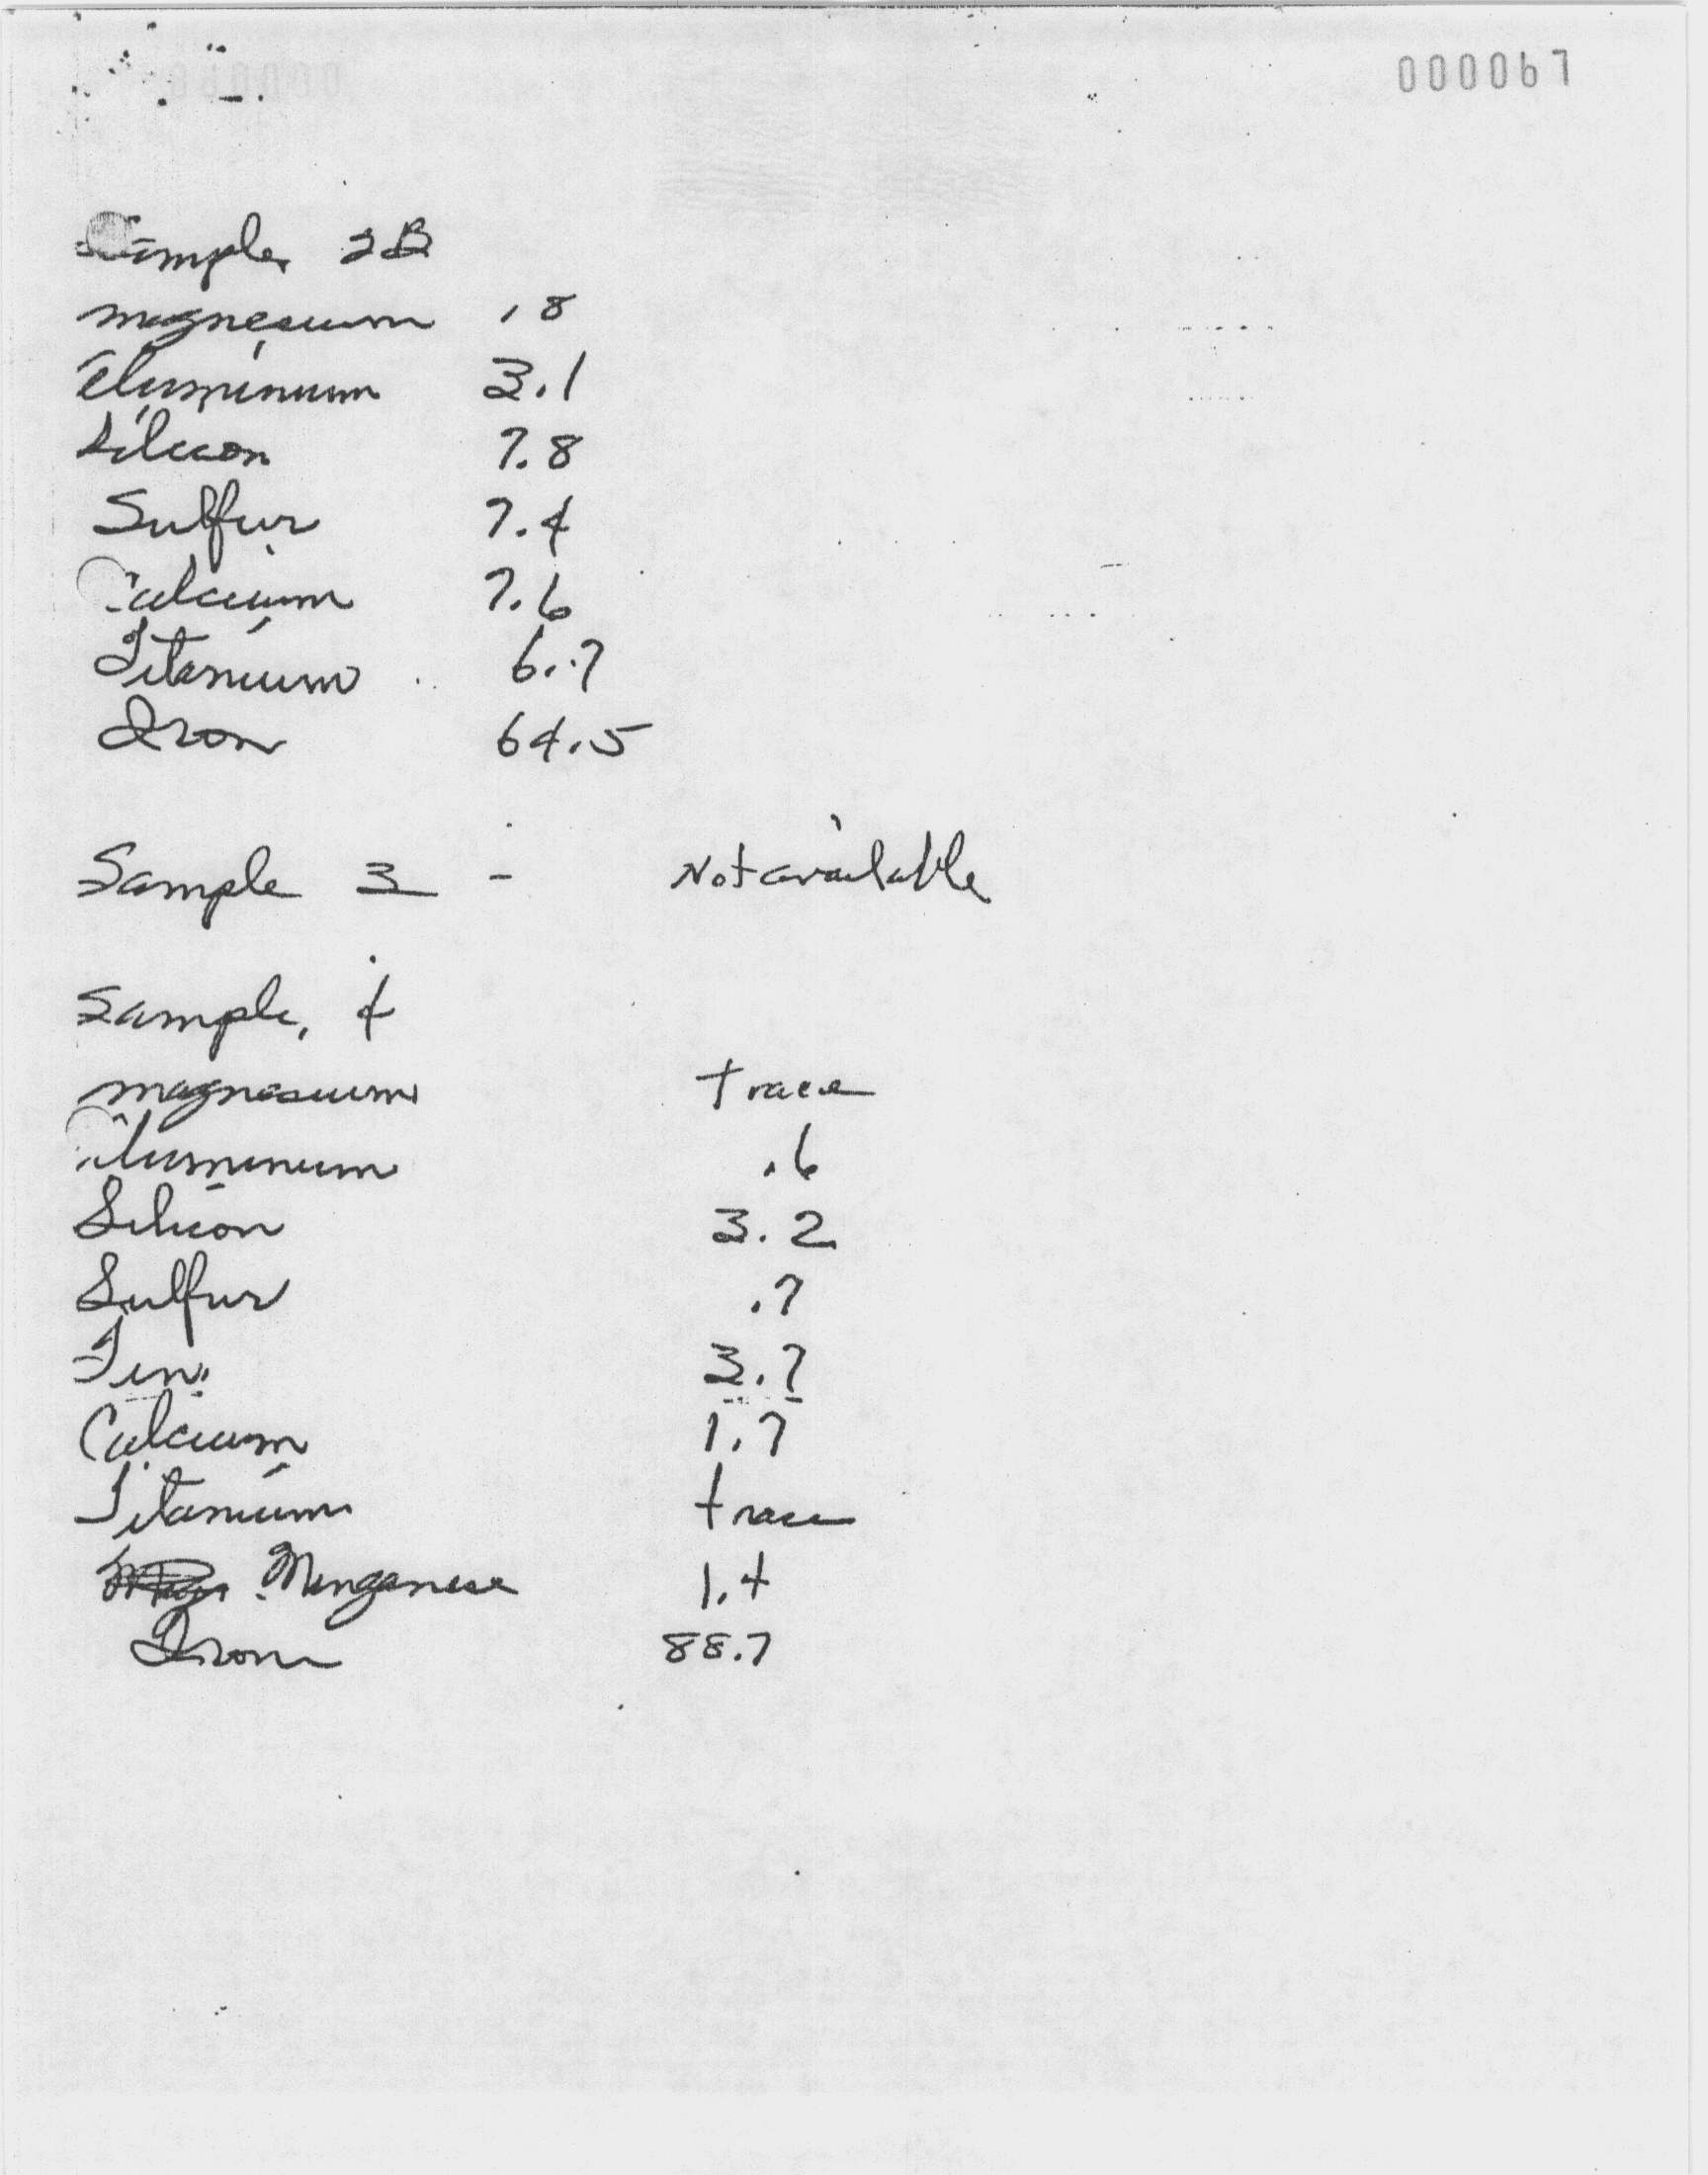 000067
Sample 2B
magnesium .8
Aluminum 3.1
Silicon 7.8
Sulfur 7.4
Calcium 7.6
Titanium 6.7
Iron 64.5
Sample 3 - Not available
Sample 4
magnesium trace
Aluminum .6
Silicon 3.2
Sulfur .7
Tin 3.7
Calcium 1.7
Titanium trace
Manganese 1.4
Iron 88.7